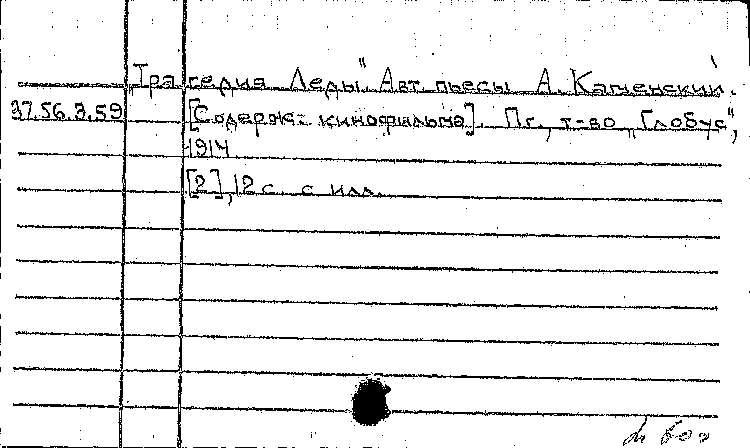 „Трагедия Леды". Авт. пьесы А. Каменский.
37.56.3.59 [Содерж-е кинофильма]. Пг., т-во „Глобус",
1914.
[2], 12 с. с илл.